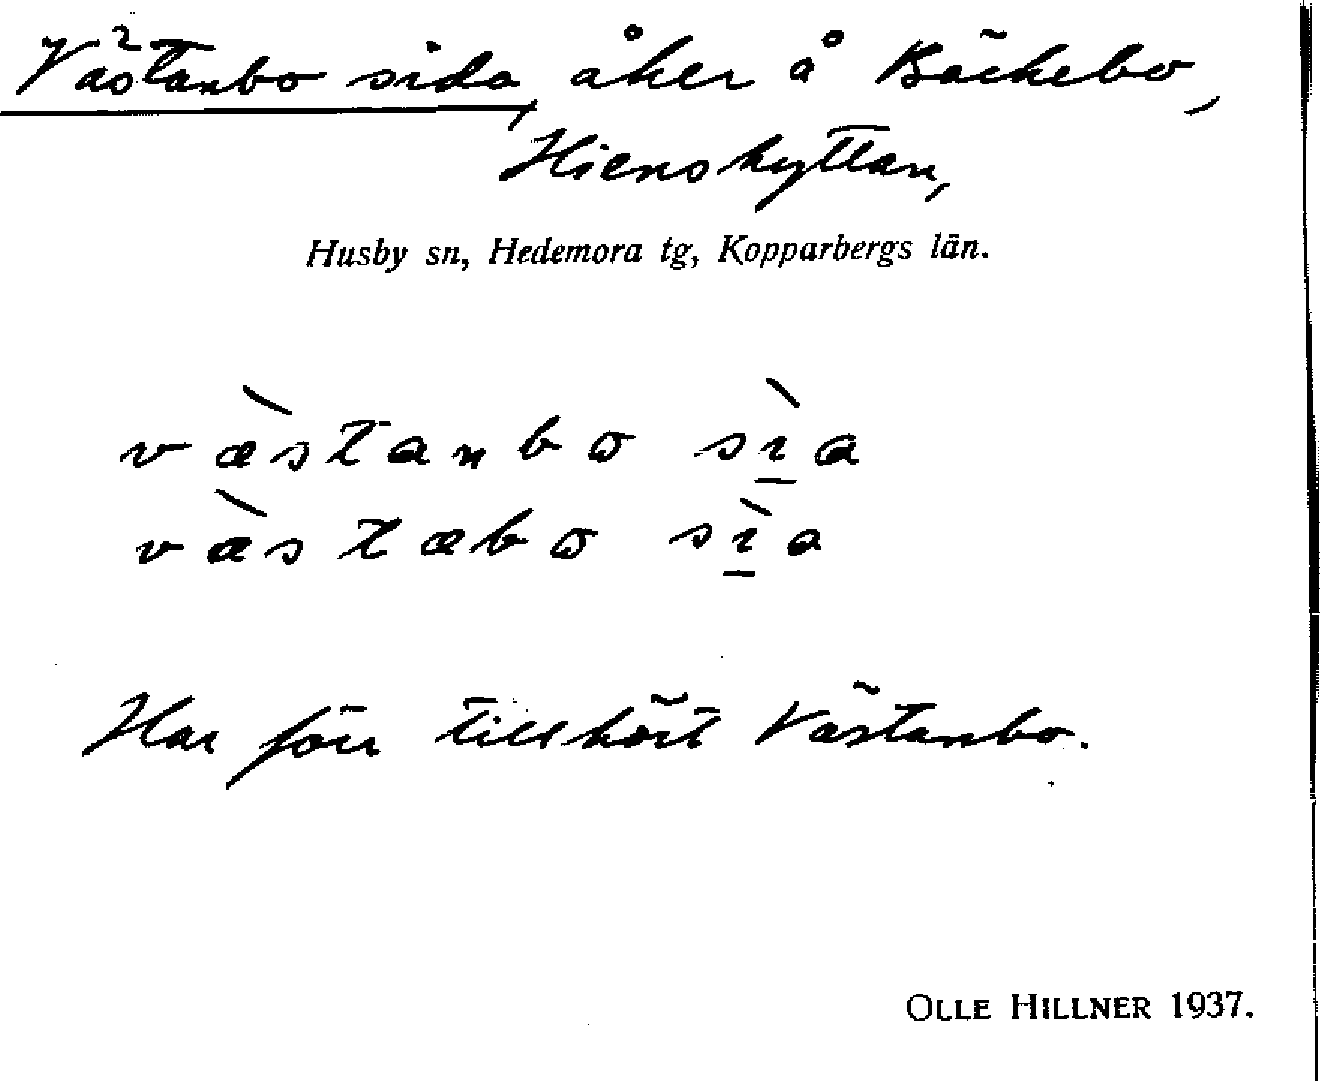 Västanbo sida, åker å Bäckebo,
Hienshyttan,
Husby sn, Hedemora tg, Kopparbergs län.
væ̀stanbɷ sı̲̀a
væ̀stæbɷ sı̲̀a
Har förr tillhört Västanbo.
OLLE HILLNER 1937.